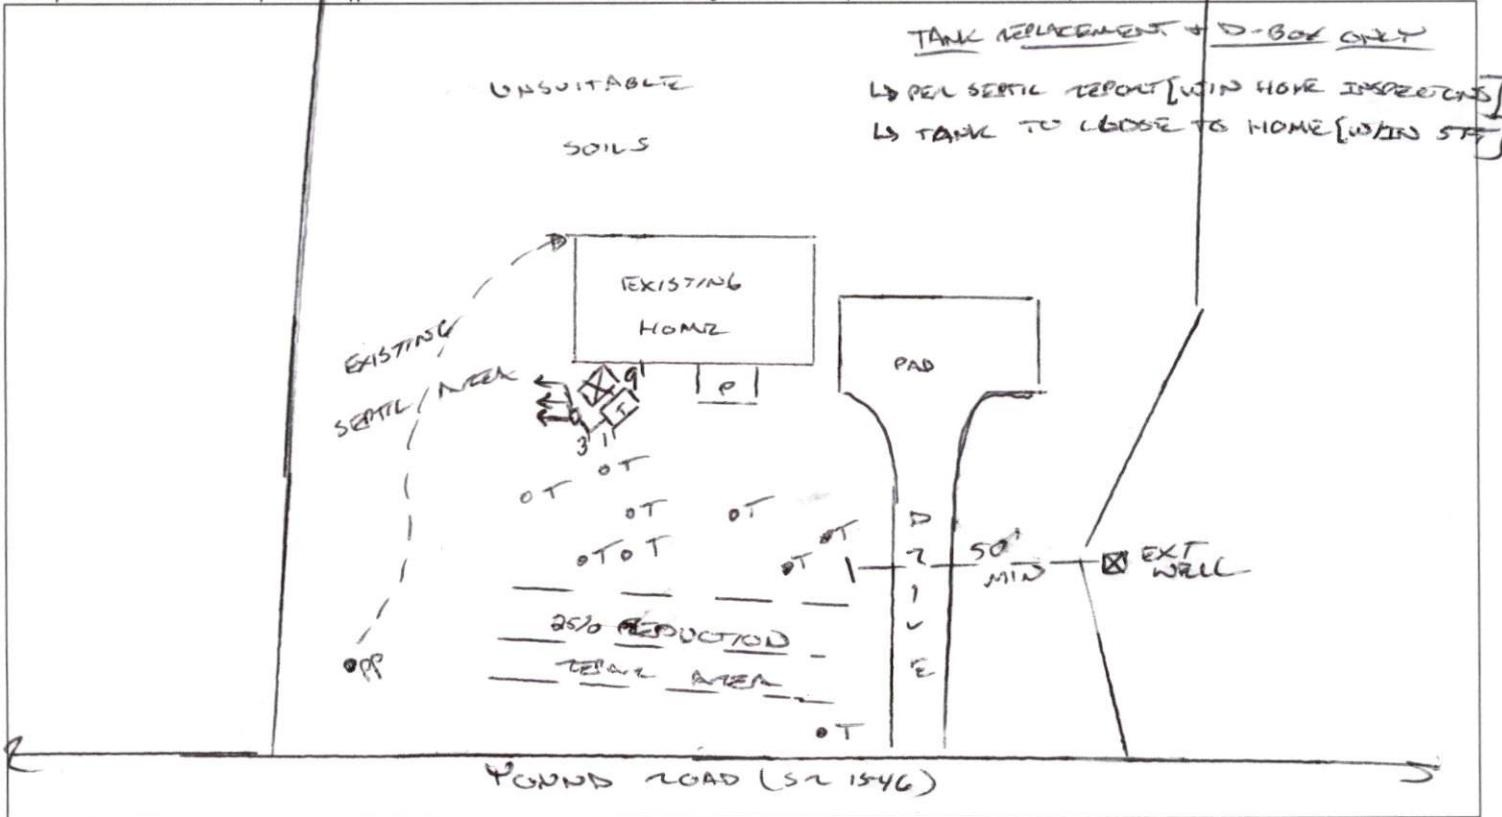 TANK REPLACEMENT + D-BOX ONLY
↳ PER SEPTIC REPORT [WIN HOME INSPECTIONS]
↳ TANK TO CLOSE TO HOME [W/IN 5FT]
UNSUITABLE
SOILS
EXISTING
HOME
PAD
P
EXISTING
SEPTIC AREA
9'
T
3' 1'
o T
o T
o T
o T
o T
o T o T
o T
DRIVE
50'
MIN
EXT
WELL
25% REDUCTION
REPAIR AREA
PP
o T
ROAD (SR 1546)